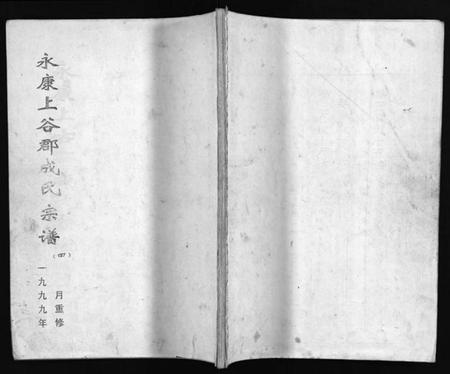 永康上谷郡成氏宗谱
(四)
一九九九年
月重修